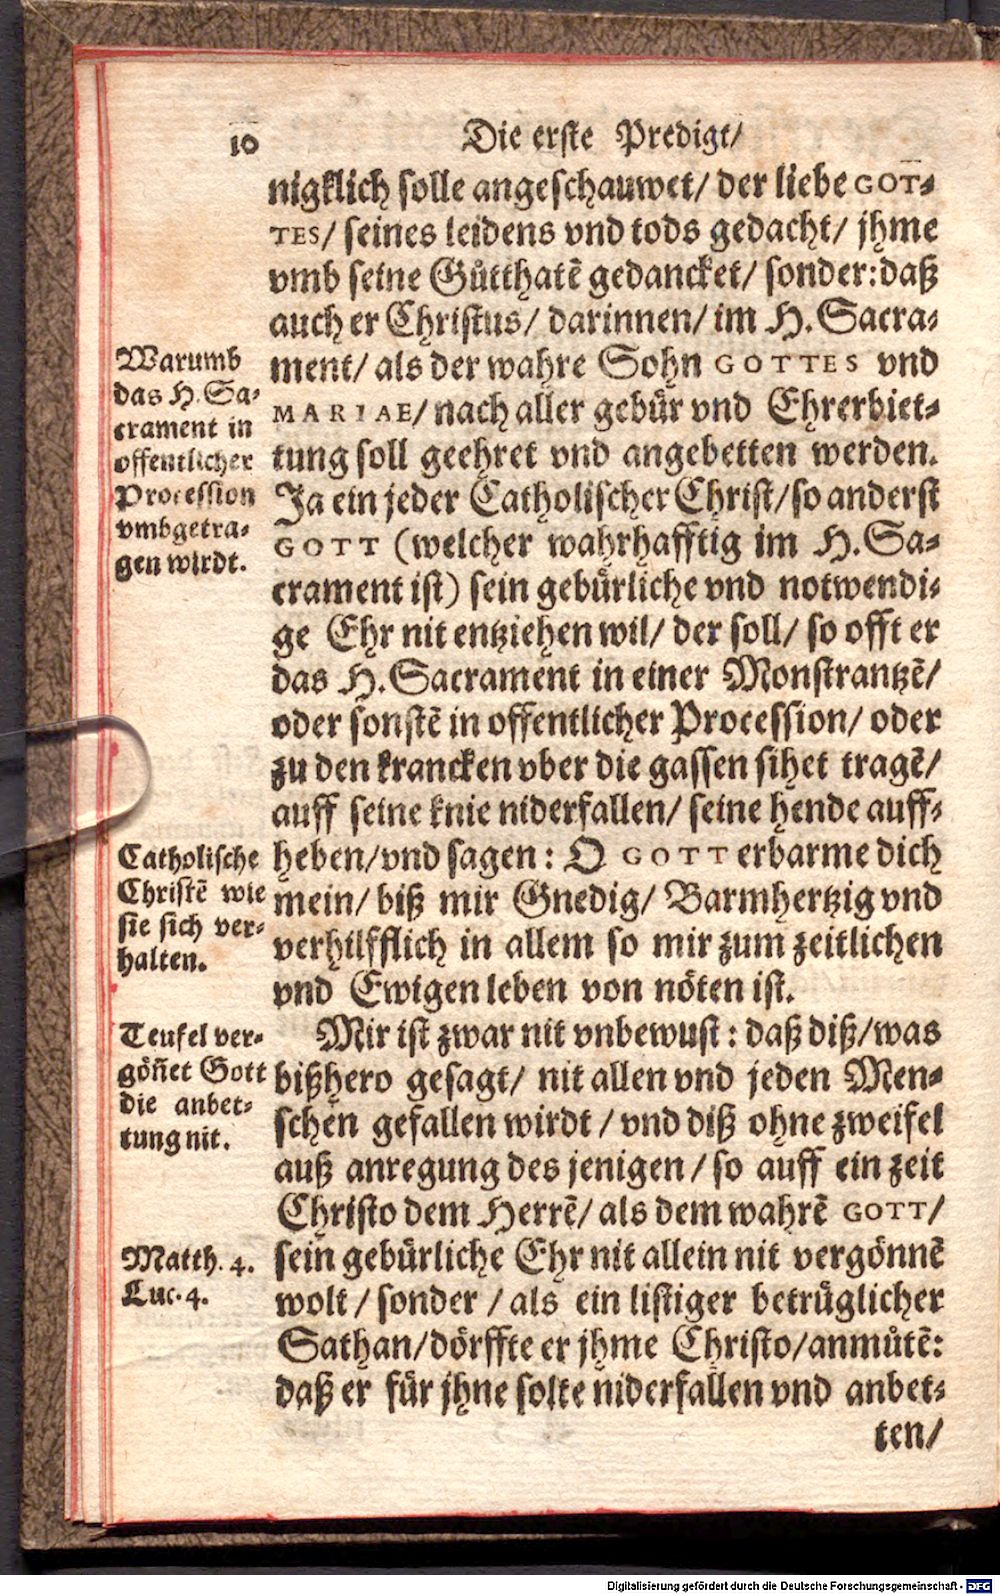 10
Die erste Predigt/
nigklich solle angeschauwet/ der liebe GOT-
TES/ seines leidens vnd tods gedacht/ jhme
vmb seine Gůtthatẽ gedancket/ sonder: daß
auch er Christus/ darinnen/ im H. Sacra-
ment/ als der wahre Sohn GOTTES vnd
MARIAE/ nach aller gebür vnd Ehrerbiet-
tung soll geehret vnd angebetten werden.
Ja ein jeder Catholischer Christ/ so anderst
GOTT (welcher wahrhafftig im H. Sa-
crament ist) sein gebürliche vnd notwendi-
ge Ehr nit entziehen wil/ der soll/ so offt er
das H. Sacrament in einer Monstrantzẽ/
oder sonstẽ in offentlicher Procession/ oder
zu den krancken vber die gassen sihet tragẽ/
auff seine knie niderfallen/ seine hende auff-
heben/ vnd sagen: O GOTT erbarme dich
mein/ biß mir Gnedig/ Barmhertzig vnd
verhilfflich in allem so mir zum zeitlichen
vnd Ewigen leben von nöten ist.
Mir ist zwar nit vnbewust: daß diß/ was
bißhero gesagt/ nit allen vnd jeden Men-
schen gefallen wirdt/ vnd diß ohne zweifel
auß anregung des jenigen/ so auff ein zeit
Christo dem Herrẽ/ als dem wahrẽ GOTT/
sein gebürliche Ehr nit allein nit vergönnẽ
wolt/ sonder/ als ein listiger betrüglicher
Sathan/ dörffte er jhme Christo/ anmůtẽ:
daß er für jhne solte niderfallen vnd anbet-
ten/
Warumb
das H. Sa-
crament in
offentlicher
Procession
vmbgetra-
gen wirdt.
Catholische
Christẽ wie
sie sich ver-
halten.
Teufel ver-
gön̄et Gott
die anbet-
tung nit.
Matth. 4.
Luc. 4.
Digitalisierung gefördert durch die Deutsche Forschungsgemeinschaft - DFG